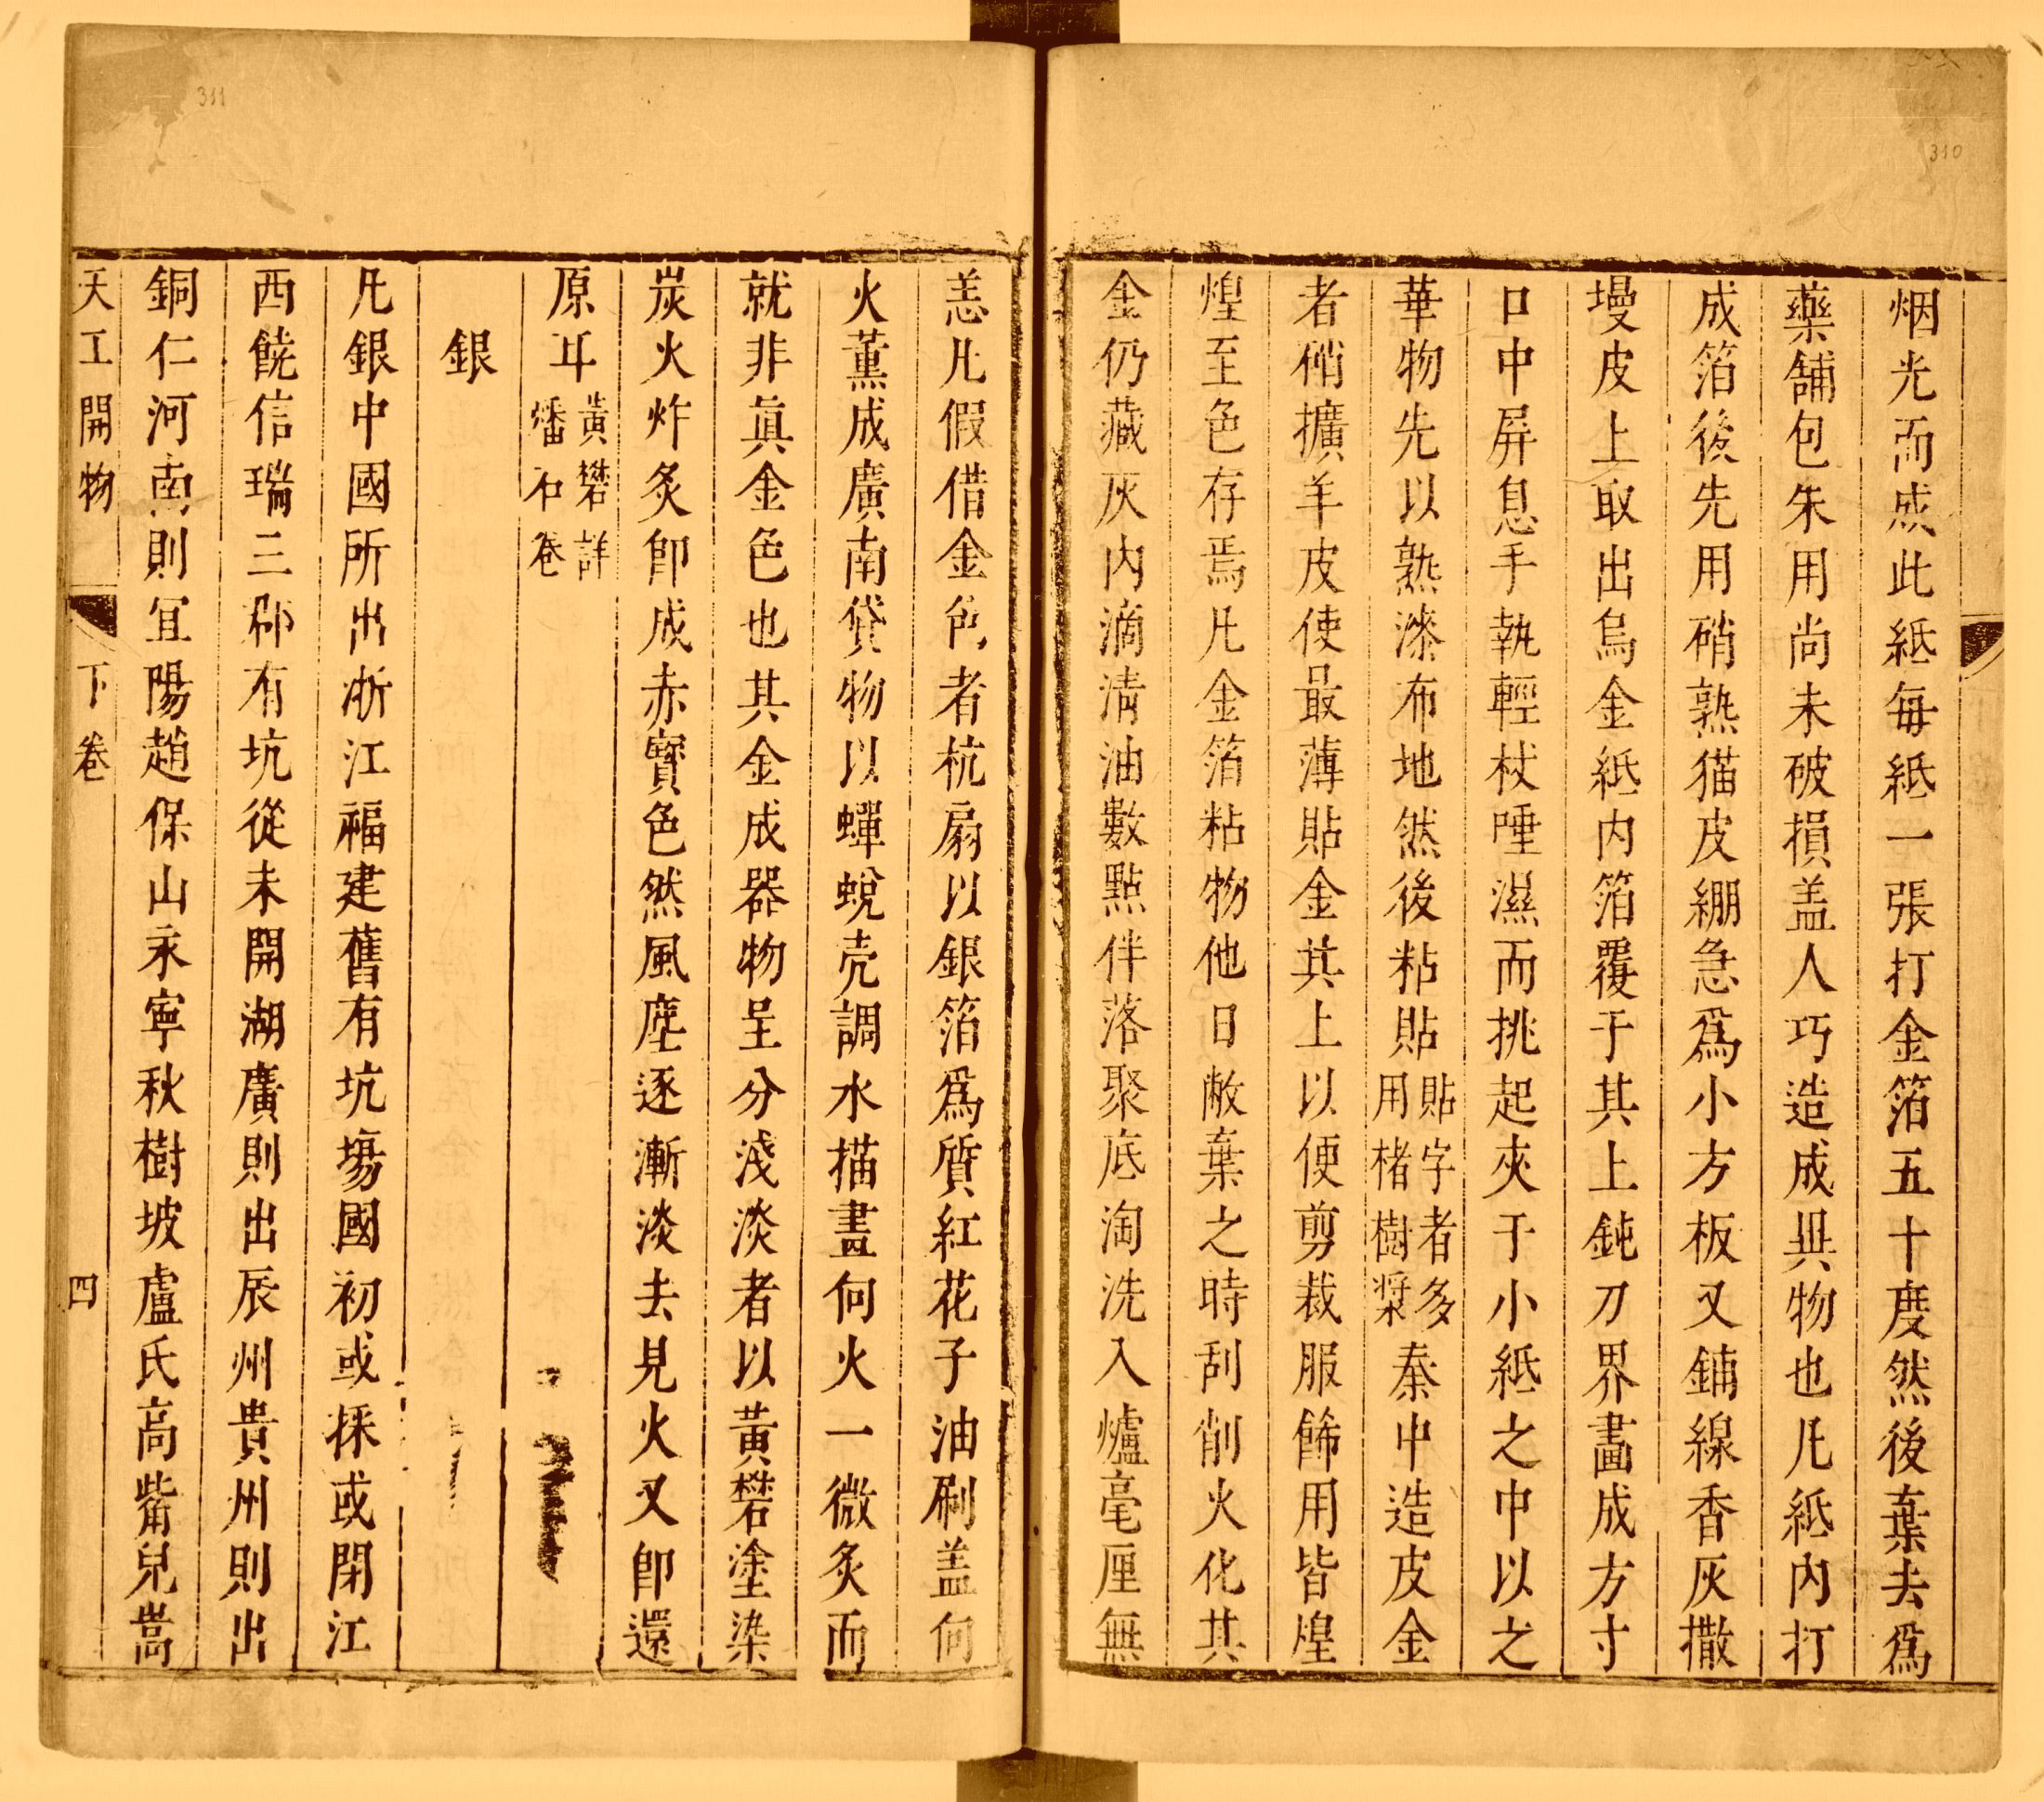 烟光而成此紙每紙一張打金箔五十度然後棄去爲
藥舖包朱用尚未破損盖人巧造成異物也凡紙內打
成箔後先用硝熟猫皮繃急爲小方板又鋪線香灰撒
墁皮上取出烏金紙內箔覆于其上鈍刀界畫成方寸
口中屏息手執輕杖唾濕而挑起夾于小紙之中以之
華物先以熟漆布地然後粘貼貼字者多用楮樹漿秦中造皮金
者硝擴羊皮使最薄貼金其上以便剪裁服飾用皆煌
煌至色存焉凡金箔粘物他日敝棄之時刮削火化其
金仍藏灰內滴清油數點伴落聚底淘洗入爐毫厘無
恙凡假借金色者杭扇以銀箔爲質紅花子油刷盖向
火薰成廣南貨物以蟬蛻壳調水描畫向火一微炙而
就非眞金色也其金成器物呈分淺淡者以黃礬塗染
炭火炸炙卽成赤寶色然風塵逐漸淡去見火又卽還
原耳黃礬詳燔石卷
銀
凡銀中國所出浙江福建舊有坑塲國初或採或閉江
西饒信瑞三郡有坑從未開湖廣則出辰州貴州則出
銅仁河南則宜陽趙保山永寧秋樹坡盧氏高觜兒嵩
天工開物 下卷 四
310
311